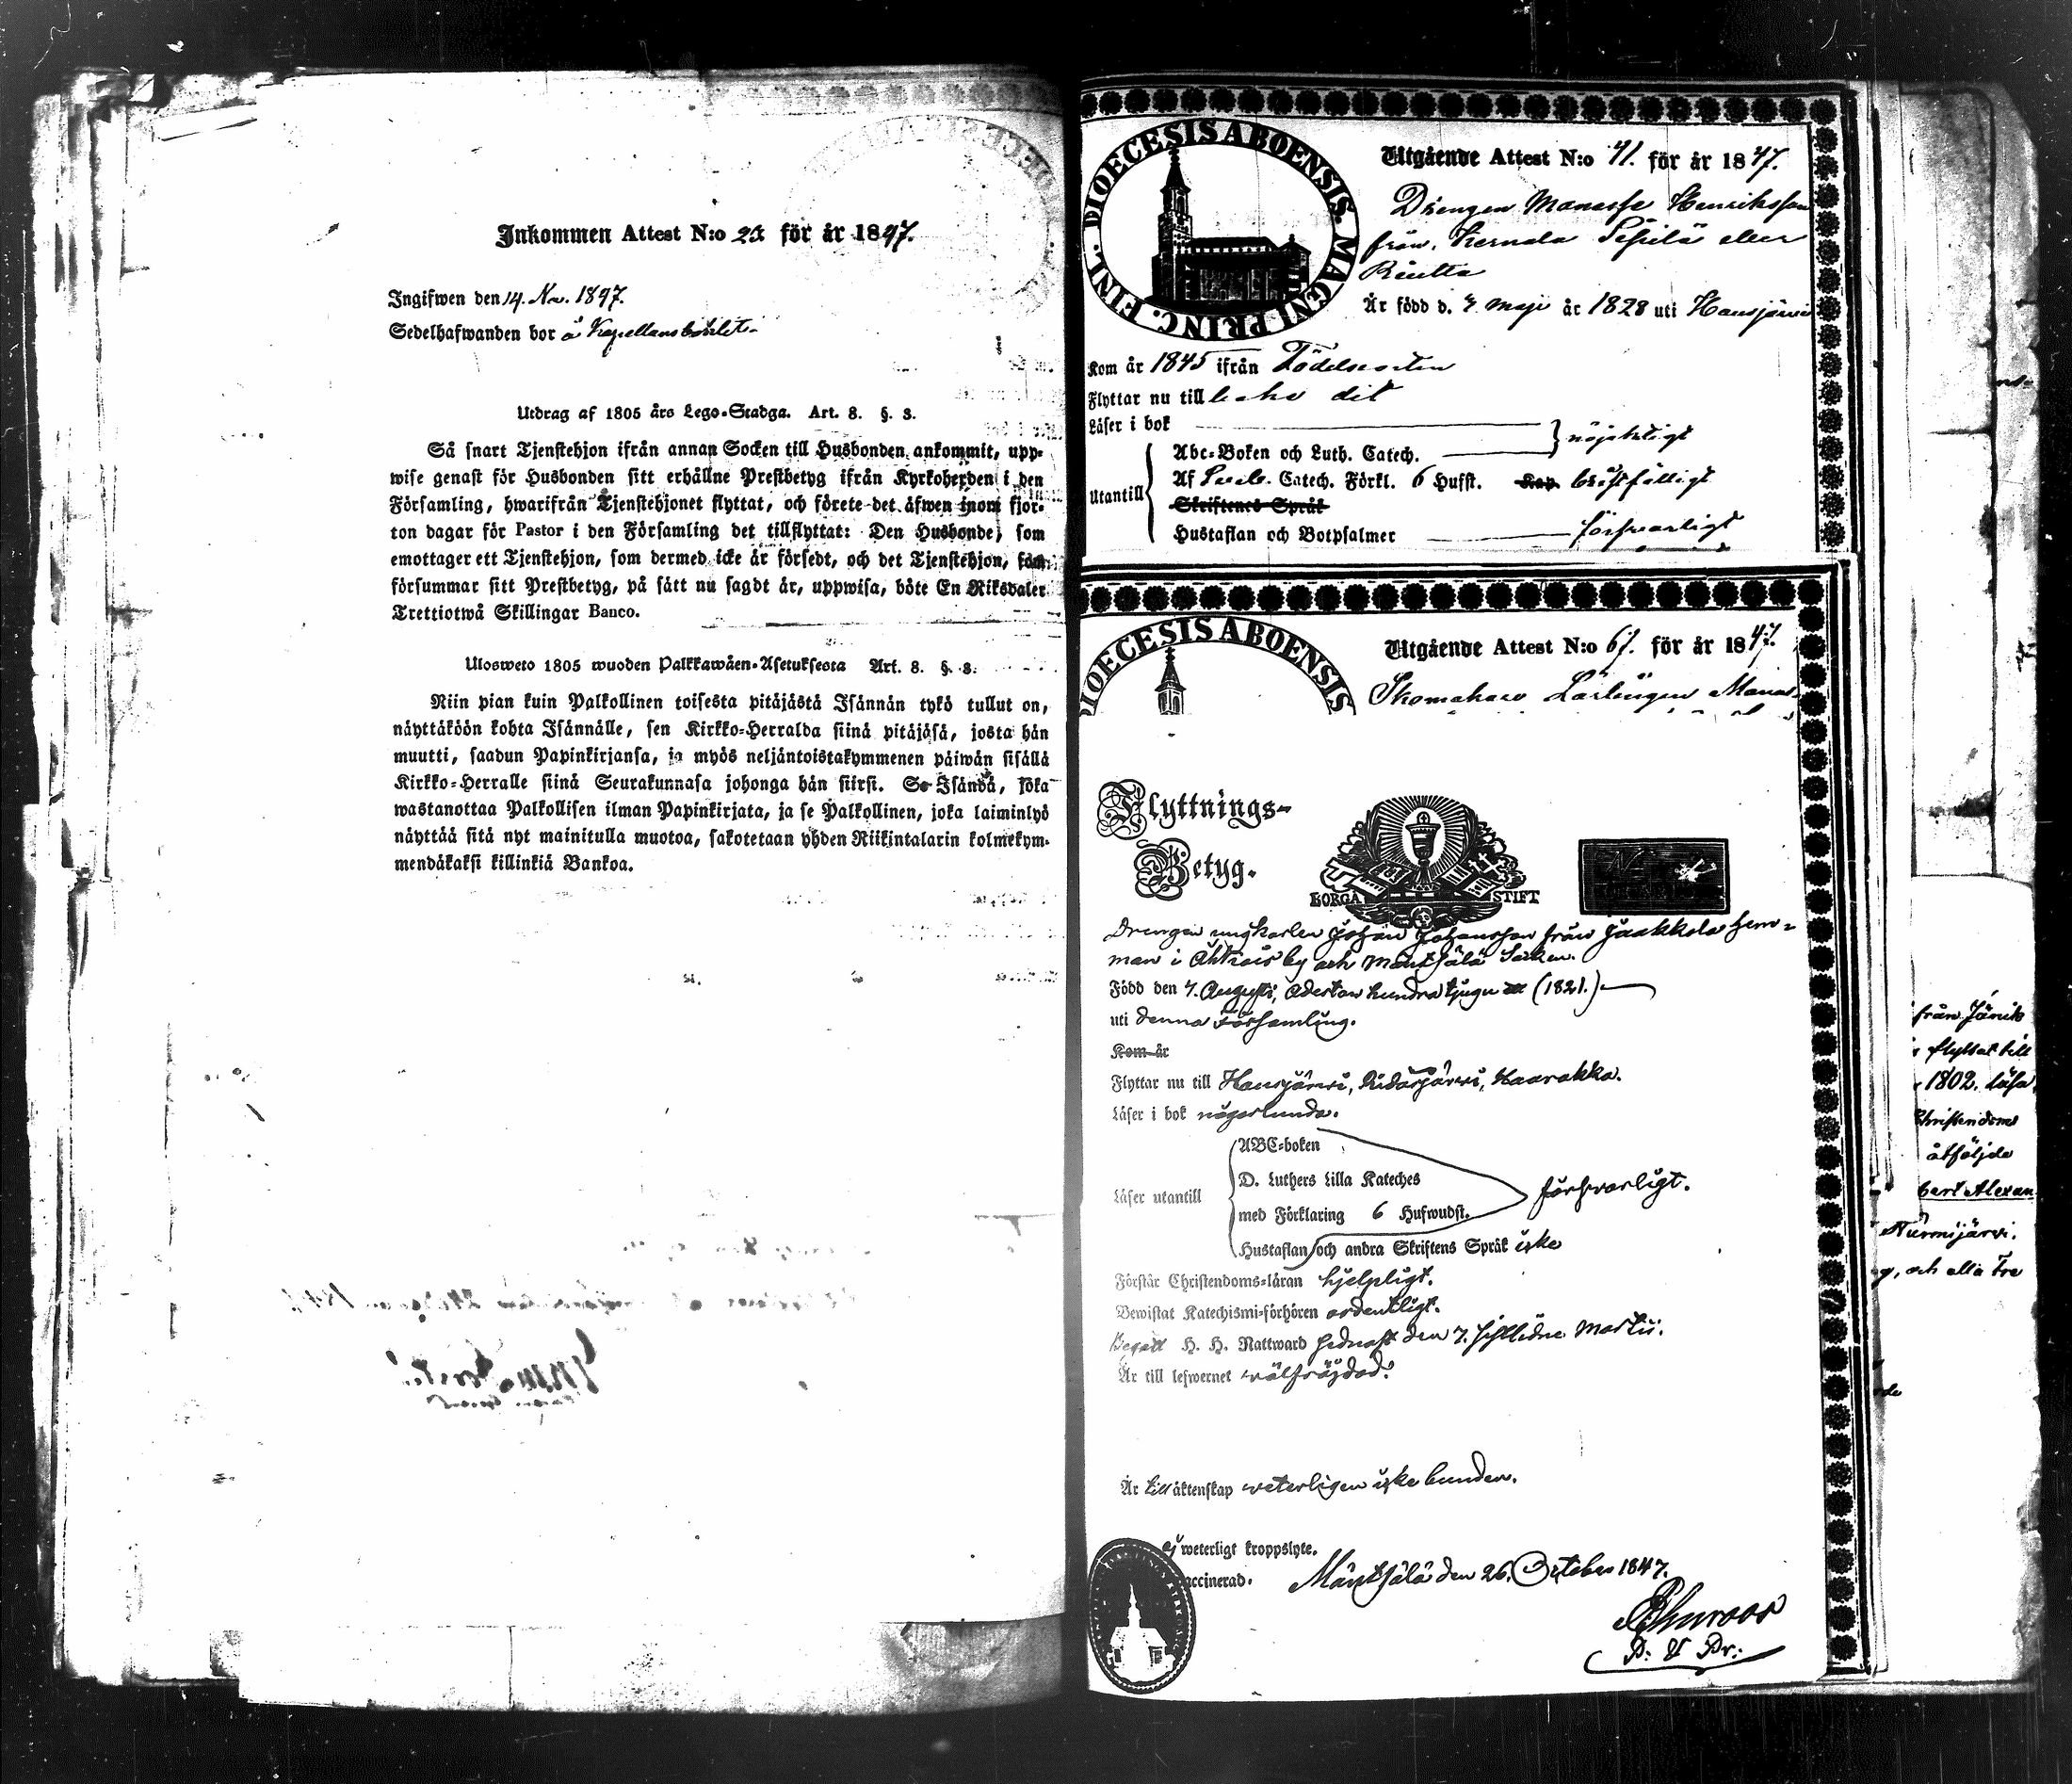 Inkommen Attest N:o 23 för år 1847.
Ingifwen den 14. No. 1847.
Sedelhafwanden bor å Kapellansbohlet.
Utdrag af 1805 års Lego-Stadga. Art. 8. §. 3.
Så snart Tjenstehjon ifrån annan Socken till Husbonden ankommit, upp-
wise genast för Husbonden sitt erhållne Prestbetyg ifrån Kyrkoherden i den
Församling, hwarifrån Tjenstehjonet flyttat, och förete det äfwen inom fjor-
ton dagar för Pastor i den Församling det tillflyttat: Den Husbonde, som
emottager ett Tjenstehjon, som dermed icke är försedt, och det Tjenstehjon, som
försummar sitt Prestbetyg, på sätt nu sagdt är, uppwisa, böte En Riksdaler
Trettiotwå Skillingar Banco.
Ulosweto 1805 wuoden Palkkawäen-Asetuksesta Art. 8. §. 3.
Niin pian kuin Palkollinen toisesta pitäjästä Isännän tykö tullut on,
näyttäköön kohta Isännälle, sen Kirkko-Herralda siinä pitäjäsä, josta hän
muutti, saadun Papinkirjansa, ja myös neljäntoistakymmenen päiwän sisällä
Kirkko-Herralle siinä Seurakunnasa johonga hän siirsi. Se Isändä, joka
wastanottaa Palkollisen ilman Papinkirjata, ja se Palkollinen, joka laiminlyö
näyttää sitä nyt mainitulla muotoa, sakotetaan yhden Riikintalarin kolmekym-
mendäkaksi killinkiä Bankoa.
DIOECESIS ABOENSIS. MAGNI PRINC. FINL.
Utgående Attest N:o 41. för år 1847.
Drengen Manasse Henriksson
från Kernala Seppälä eller
Är född d. 4 Maji år 1828 uti Hausjärvi
Kom år 1845 ifrån Födelseorten
Flyttar nu till baka dit
Läser i bok
nöjaktigt
Abc-Boken och Luth. Catech.
Utantill
Af Catech. Förkl. 6 Hufst. Kap bristfälligt
Skriftenes Språk
Hustaflan och Botpsalmer försvarligt
DIOECESIS ABOENSIS
Utgående Attest N:o 61. för år 1847.
Skomakare Lärlingen Manas
Flyttnings-
Betyg.
BORGA STIFT
Drengen ungkarlen Johan Johansson från Jaakkola hem-
man i by och Mäntsälä Socken.
Född den 7. Augusti, Adertonhundra tjugu (1821.)
uti denna Församling.
Kom år
Flyttar nu till Hausjärvi, Ridasjärvi, Haarakka.
Läser i bok någorlunda.
ABC-boken
D. Luthers Lilla Kateches
Läser utantill
försvarligt.
med Förklaring 6 Hufwudst.
Hustaflan och andra Skriftens Språk icke
Förstår Christendoms-läran hjelpligt.
Bewistat Katechismi-förhören ordentligt.
Begått H. H. Nattward sednast den 7. sistlidne Martii.
Är till lefwernet wälfräjdad.
Är till äktenskap weterligen icke bunden.
ej weterligt kroppslyte.
accinerad. Mäntsälä den 26. October 1847.
från
flyttat till
1802. läsa
Christendoms
åtföljde
bert Alexan
Nurmijärvi.
och alla tre